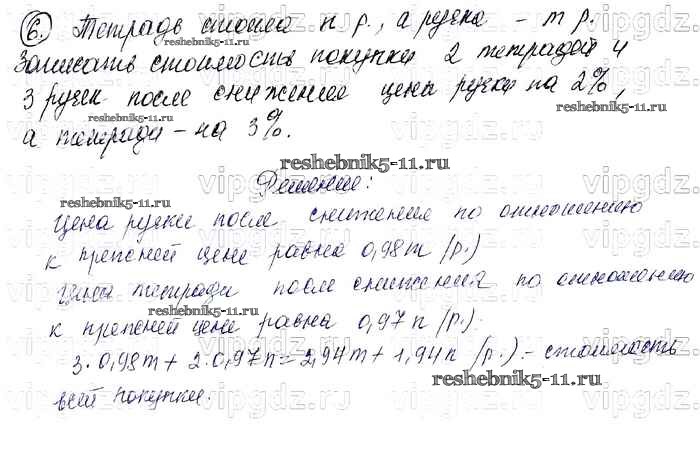 6. Тетрадь стоила n р., а ручка – m р.
Записать стоимость покупки 2 тетрадей и
3 ручек после снижения цены ручки на 2%,
а тетради – на 3%.
Решение:
Цена ручки после снижения по отношению
к прежней цене равна 0,98m (р.)
Цена тетради после снижения по отношению
к прежней цене равна 0,97n (р.).
3·0,98m + 2·0,97n = 2,94m + 1,94n (р.) – стоимость
всей покупки.
vipgdz.ru
reshebnik5-11.ru
reshebnik5-11.ru
reshebnik5-11.ru
reshebnik5-11.ru
reshebnik5-11.ru